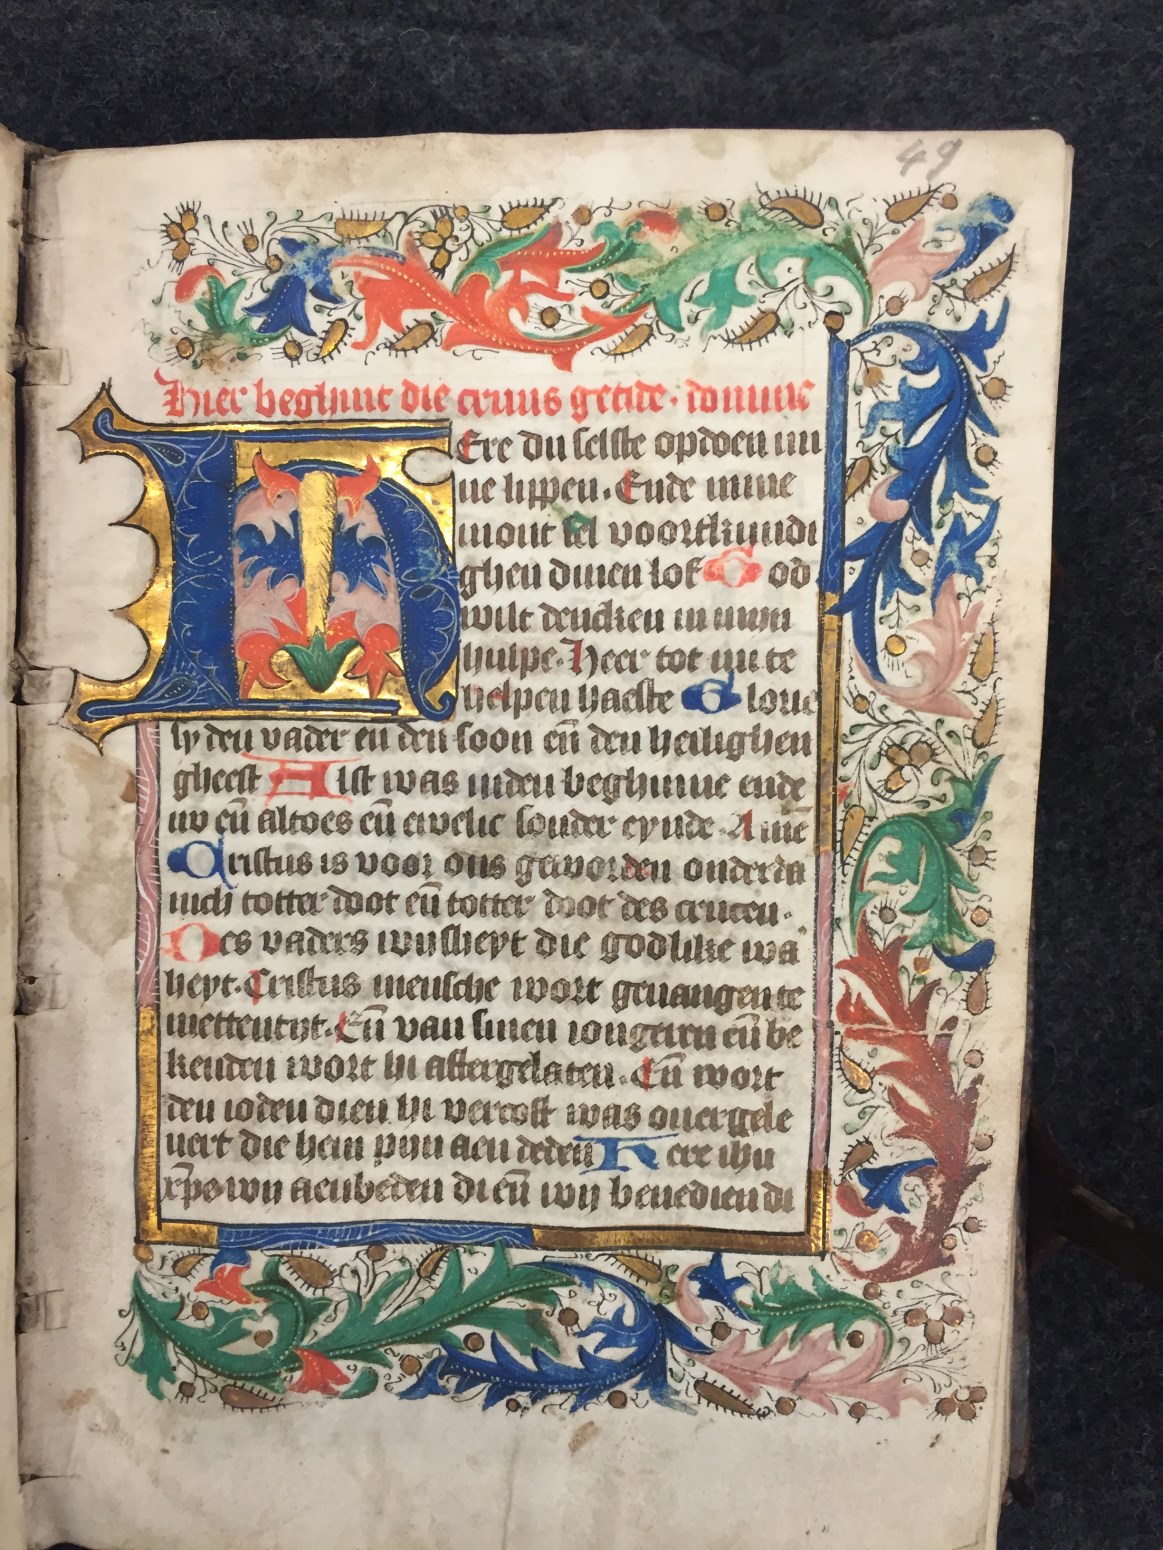 49
Hier beghint die cruus getide. domine
HEre du selste opdoen mi
ne lippen. Ende mine
mont sel voortkundi
ghen dinen lof God
wilt dencken in mijn
hulpe. Heer tot mi te
helpen haeste Glorie
sy den vader en den soon eñ den heilighen
gheest Alst was inden beghinne ende
nv eñ altoes eñ ewelic sonder eynde. Amē
Cristus is voor ons geworden onderda
nich totter doot eñ totter doot des crucen.
Des vaders wijsheyt die godlike wa
heyt. Cristus mensche wort geuangen te
mettentijt. Eñ van sinen iongeren eñ be
kenden wort hi aftergelaten. Eñ wort
den ioden dien hi vercoft was ouergele
uert die hem pijn aen deden Here ihu
xp̄s wij aenbeden di eñ wij benedien di